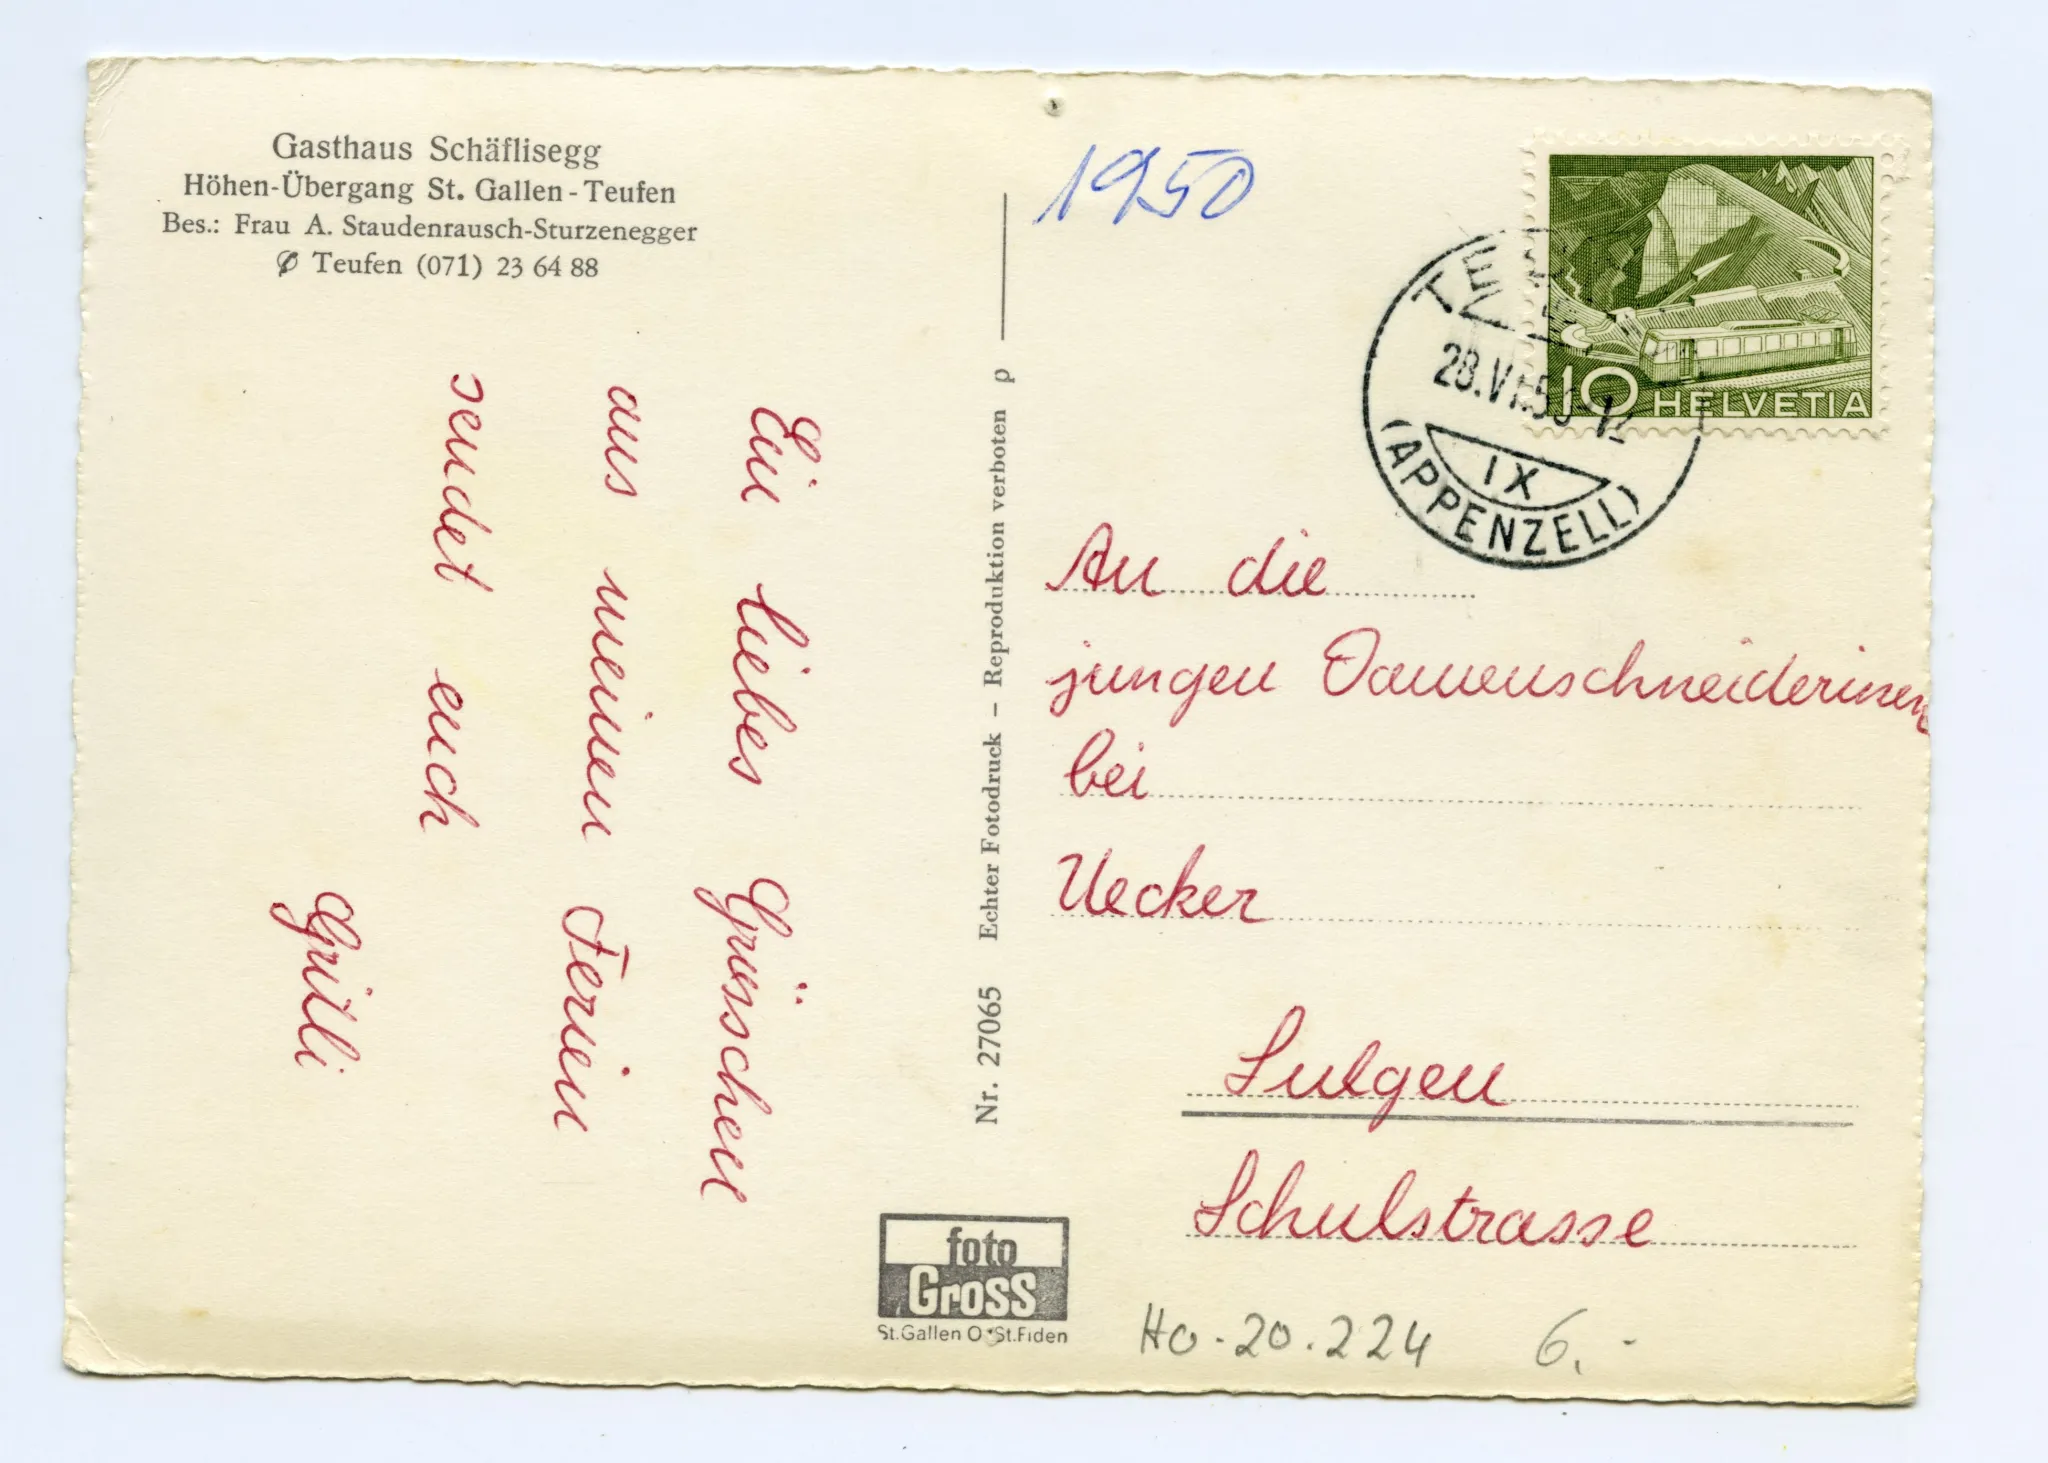 Gasthaus Schäflisegg
Höhen-Übergang St. Gallen - Teufen
Bes.: Frau A. Staudenrausch-Sturzenegger
Teufen (071) 23 64 88
Ein liebes Grüsschen
aus meinen Ferien
sendet euch
Gritli
Nr. 27065 Echter Fotodruck – Reproduktion verboten
foto
Gross
St.Gallen O • St.Fiden
1950
10 HELVETIA
28.VI.50
IX
(APPENZELL)
An die
jungen Damenschneiderinen
bei
Uecker
Sulgen
Schulstrasse
Ho-20.224 6.-